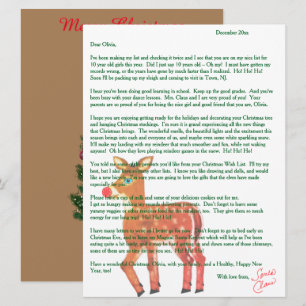 Merry Christmas
December 20xx
Dear Olivia,
I've been making my list and checking it twice and I see that you are on my nice list for
10 year old girls this year. Did I just say 10 years old – Oh my! I must have gotten my
records wrong, or the years have gone by much faster than I realized. Ho! Ho! Ho!
Soon I'll be packing up my sleigh and coming to visit in Town, NJ.
I hear you've been doing good learning in school. Keep up the good grades. And you've
been busy with your dance lessons. Mrs. Claus and I are very proud of you. Your
parents are so proud of you for being the nice girl and good friend that you are, Olivia,
I hope you are enjoying getting ready for the holidays and decorating your Christmas tree
and hanging Christmas stockings. I'm sure it is grand experiencing all the new things
that Christmas brings. The wonderful smells, the beautiful lights and the excitement this
season brings unto each and everyone of us, and maybe even some white sparkling snow.
It'll make my landing with my reindeers that much smoother and fun, while not waking
anyone! Oh how they love playing reindeer games in the snow. Ho! Ho! Ho!
You told me some presents you'd like from your Christmas Wish List. I'll try my
best, but I also have so many other lists. I know you like drawing and dolls, and would
like a new
especially for you
Please have a cup of milk and some of your delicious cookies out for me.
I get so hungry making my rounds delivering presents. Don't forget to leave some
yummy veggies or other treats for the reindeer, too. They give them so much
energy for our long trip! Ho! Ho! Ho!
I have many letters to write as I better go for now. Don't forget to go to bed early on
Christmas Eve, and to leave my Magical Santa Key out which will help as I've been
eating quite a bit lately, and it may be hard getting up and down some of those chimneys,
some of them are so tiny as it is you know. Ho! Ho! Ho!
I have a wonderful Christmas Olivia, with your family, and a Healthy, Happy New
Year, too!
With love from,
Santa
Claus